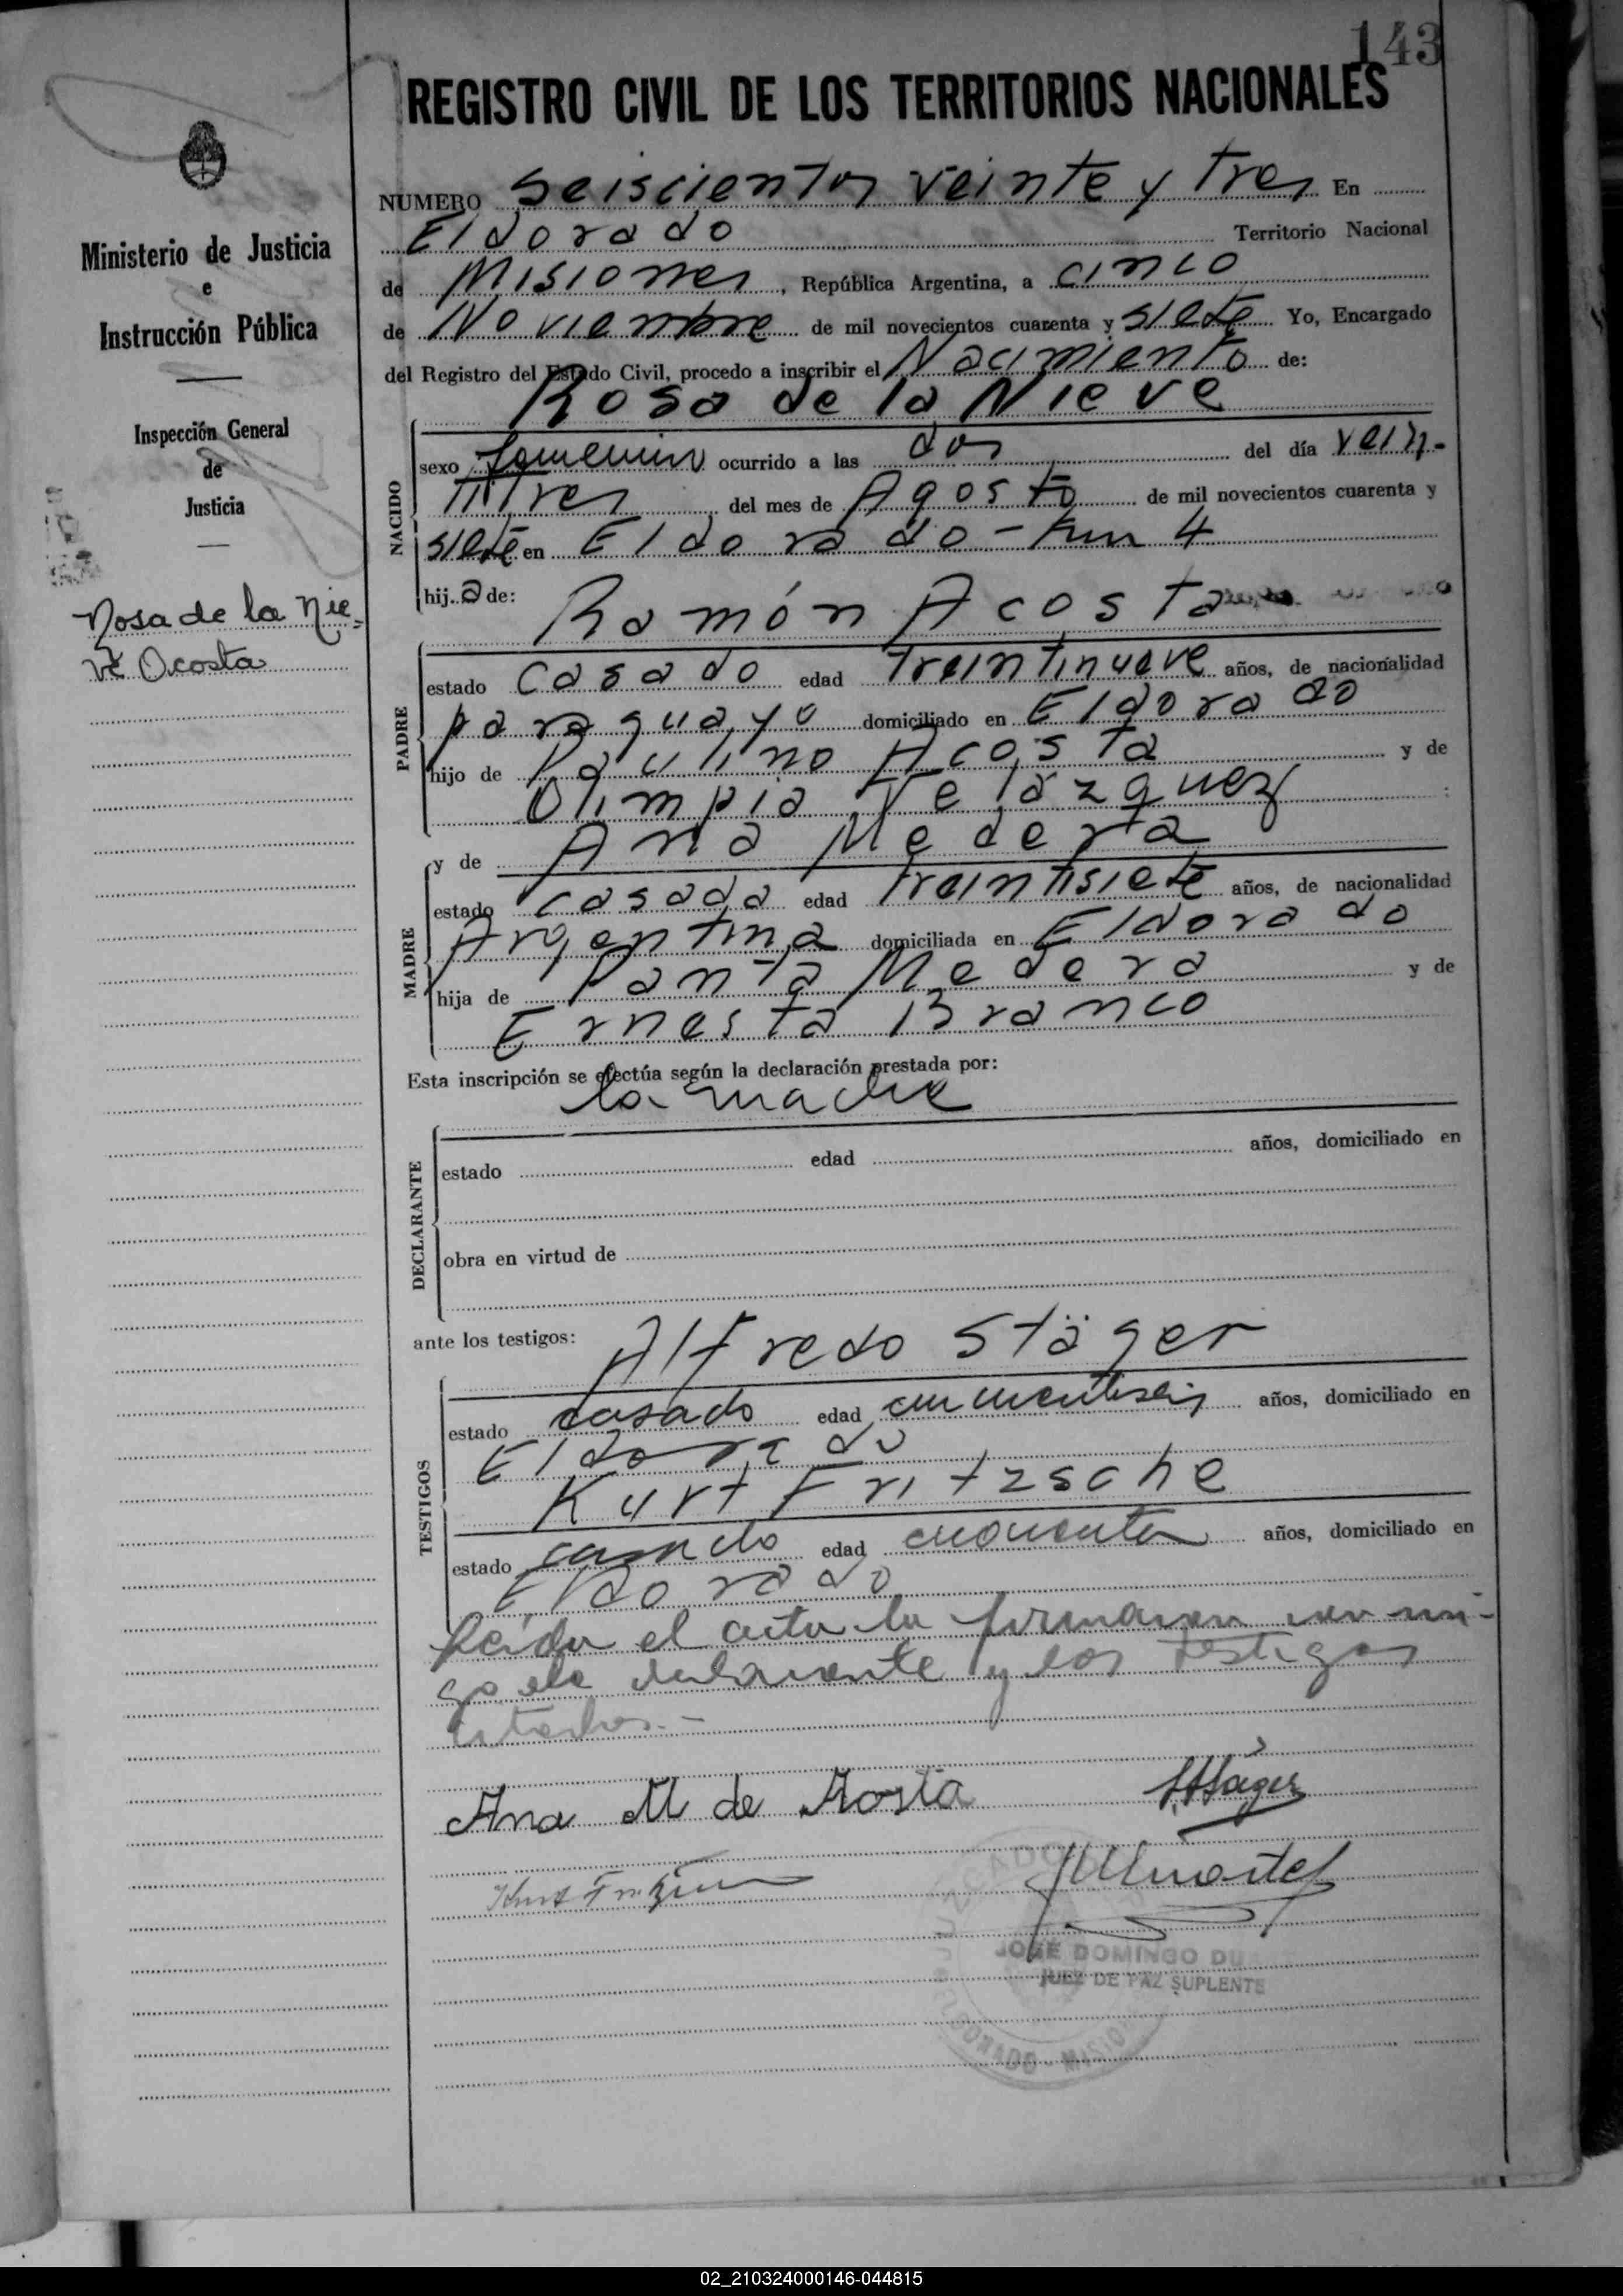 143
REGISTRO CIVIL DE LOS TERRITORIOS NACIONALES
Ministerio de Justicia
e
Instrucción Pública
Inspección General
de
Justicia
Rosa de la Nie=
ve Acosta
NUMERO seiscientos veinte y tres En
Eldorado Territorio Nacional
de Misiones, República Argentina, a cinco
de Noviembre de mil novecientos cuarenta y siete Yo, Encargado
del Registro del Estado Civil, procedo a inscribir el Nacimiento de:
Rosa de la Nieve
NACIDO
sexo femenino ocurrido a las dos del día vein-
titres del mes de Agosto de mil novecientos cuarenta y
siete en Eldorado - Km 4
hija de: Ramón Acosta
PADRE
estado casado edad treintinueve años, de nacionalidad
paraguayo domiciliado en Eldorado
hijo de Paulino Acosta y de
Olimpia Velázquez
y de Ana Medera
MADRE
estado casada edad treintisiete años, de nacionalidad
Argentina domiciliada en Eldorado
hija de Panta Medera y de
Ernesta Branco
Esta inscripción se efectúa según la declaración prestada por:
la madre
DECLARANTE
estado edad años, domiciliado en
obra en virtud de
ante los testigos: Alfredo Stäger
TESTIGOS
estado casado edad cincuentiseis años, domiciliado en
Eldorado
Kurt Fritzsche
estado casado edad cuarenta años, domiciliado en
Eldorado
Leída el acta la firmaron conmi-
go el declarante y los testigos
citados.-
Ana M de Acosta
JOSÉ DOMINGO DU
JUEZ DE PAZ SUPLENTE
ELDORADO - MISIO
02_210324000146-044815